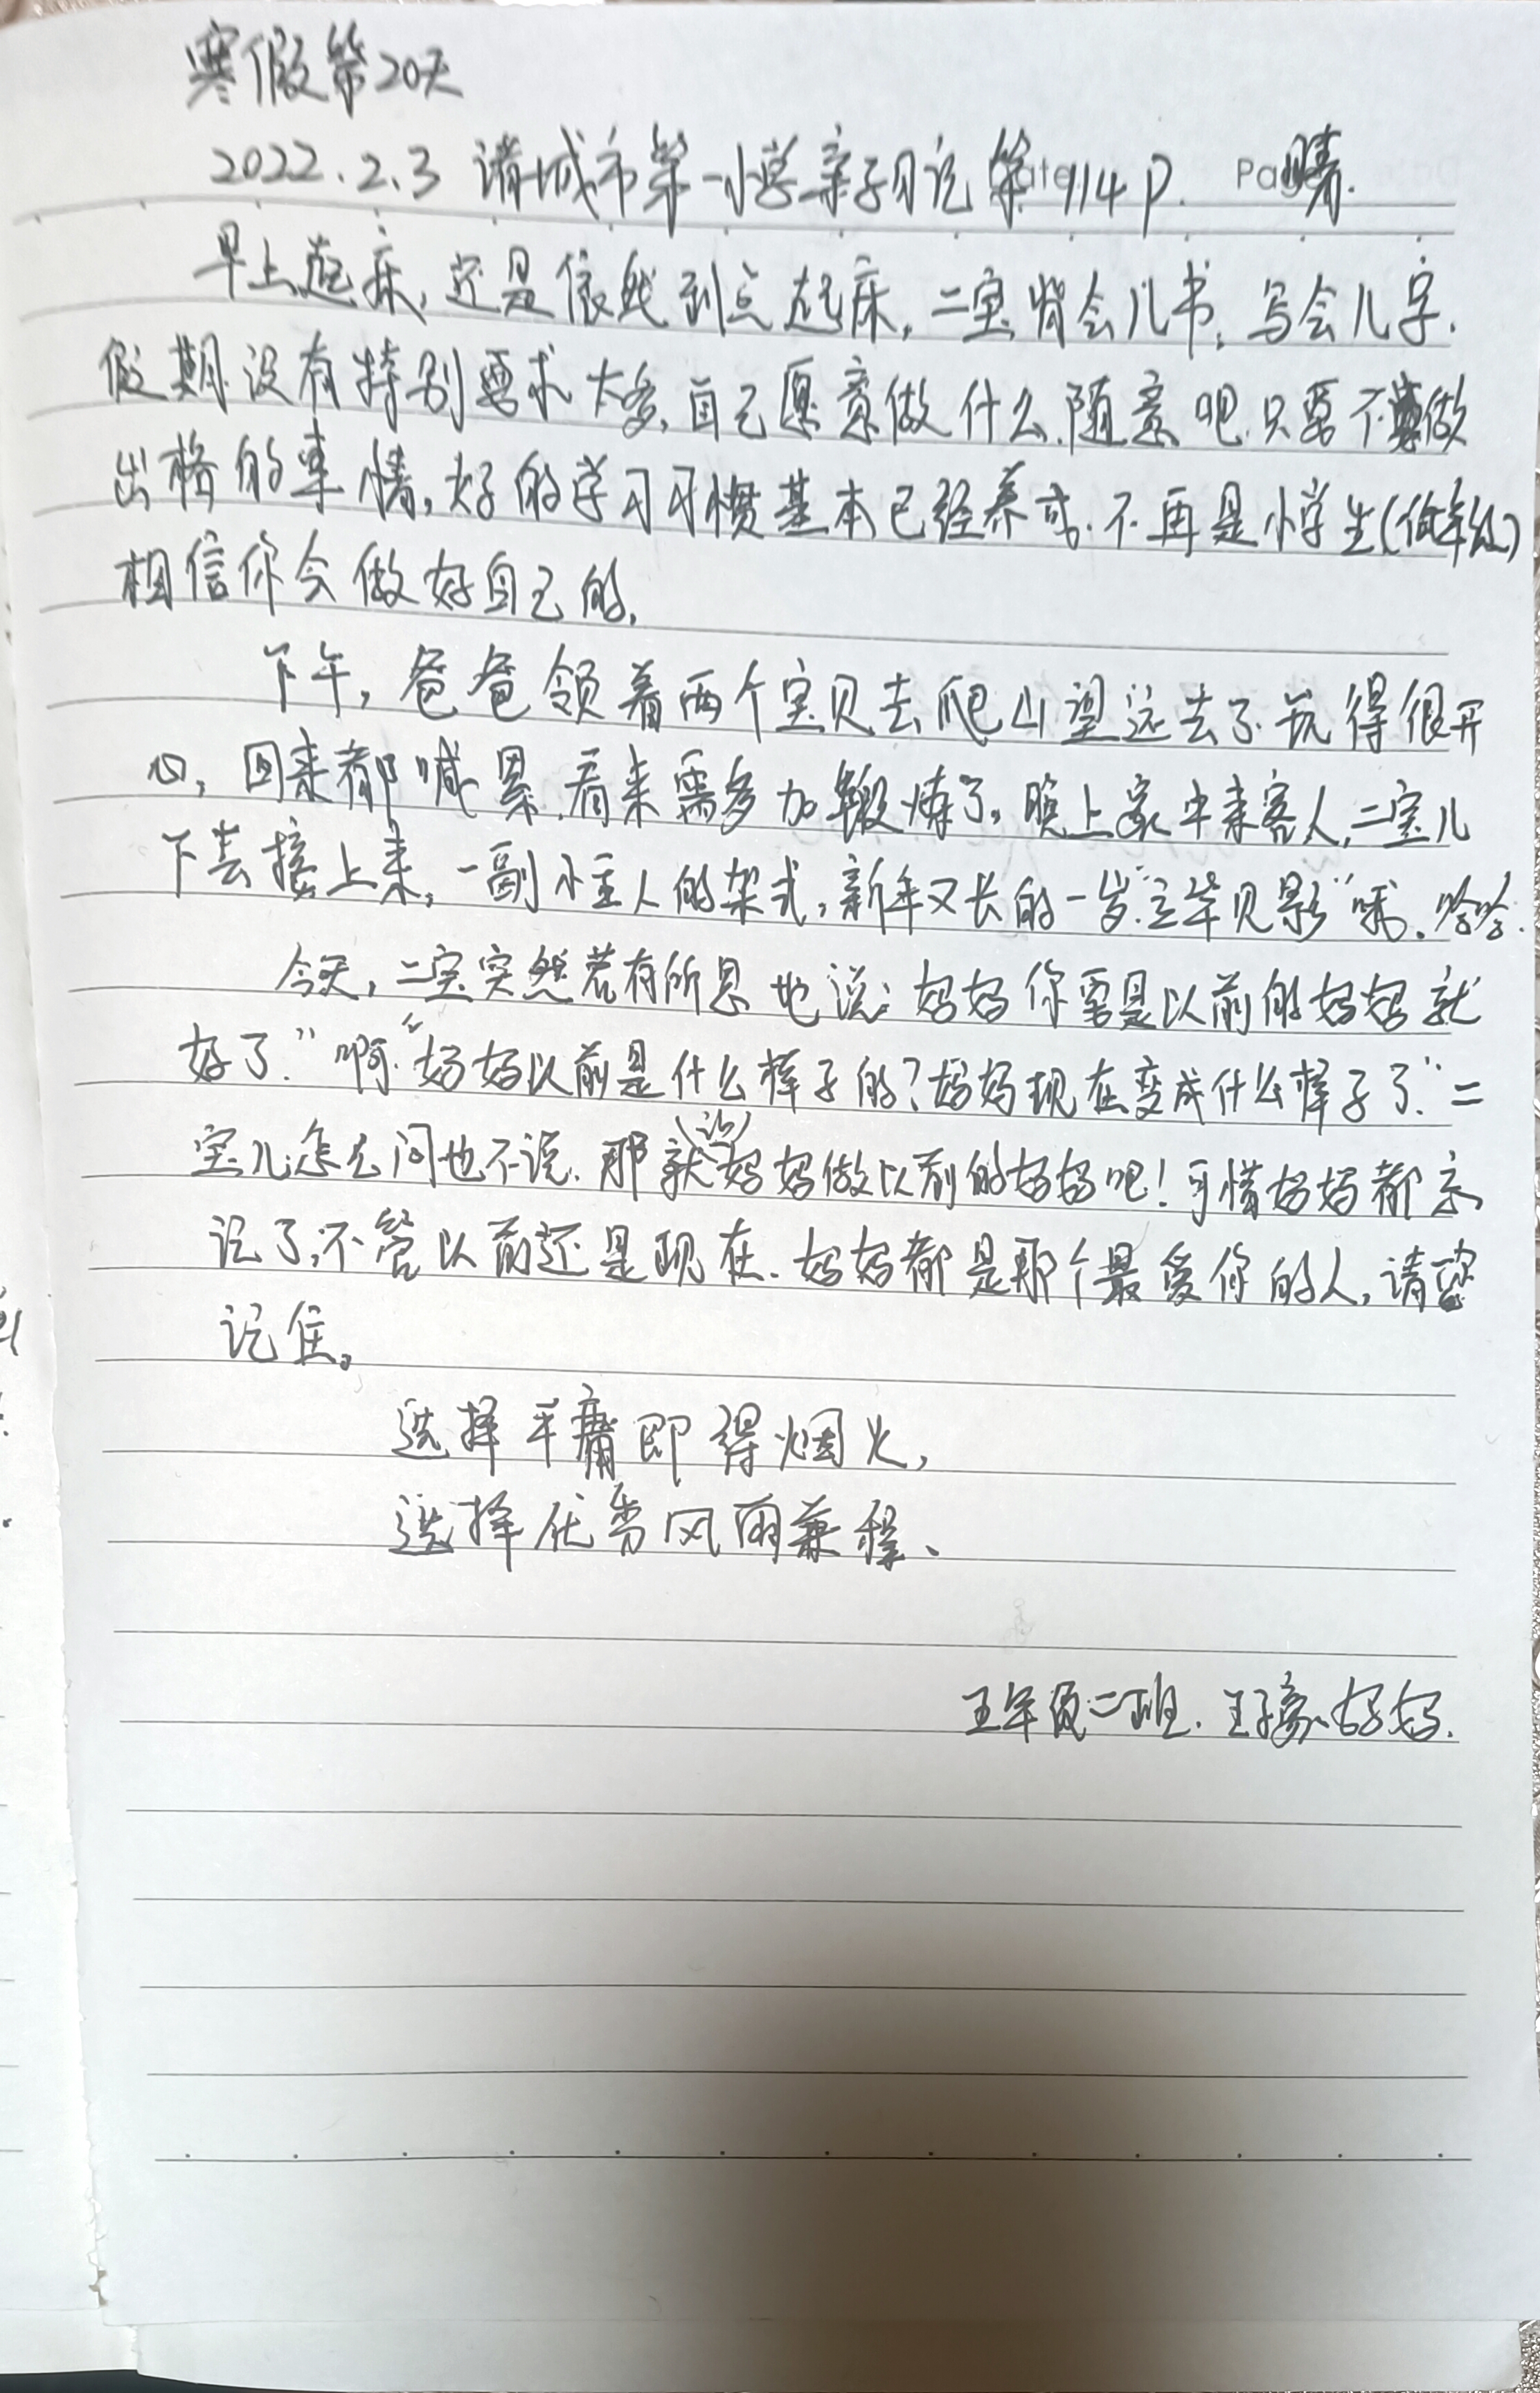 寒假第20天
2022.2.3 诸城市第一小学亲子日记 第114P. 晴.
早上起床,还是依然到点起床,二宝背会儿书,写会儿字.
假期没有特别要求太多,自己愿意做什么,随意吧.只要不做
出格的事情,好的学习习惯基本已经养成.不再是小学生(低年级)
相信你会做好自己的.
下午,爸爸领着两个宝贝去爬山望远去了.玩得很开
心,回来都喊累.看来需多加锻炼了。晚上家中来客人,二宝儿
下去接上来,一副小主人的架式,新年又长的一岁"立竿见影"哦.哈哈.
今天,二宝突然若有所思地说:妈妈你要是以前的妈妈就
好了."啊."妈妈以前是什么样子的?妈妈现在变成什么样子了."二
宝儿怎么问也不说.那就(让)妈妈做以前的妈妈吧!可惜妈妈都忘
记了,不管以前还是现在.妈妈都是那个最爱你的人,请
记住。
选择平庸即得烟火,
选择优秀风雨兼程、
五年级二班.王子豪妈妈.